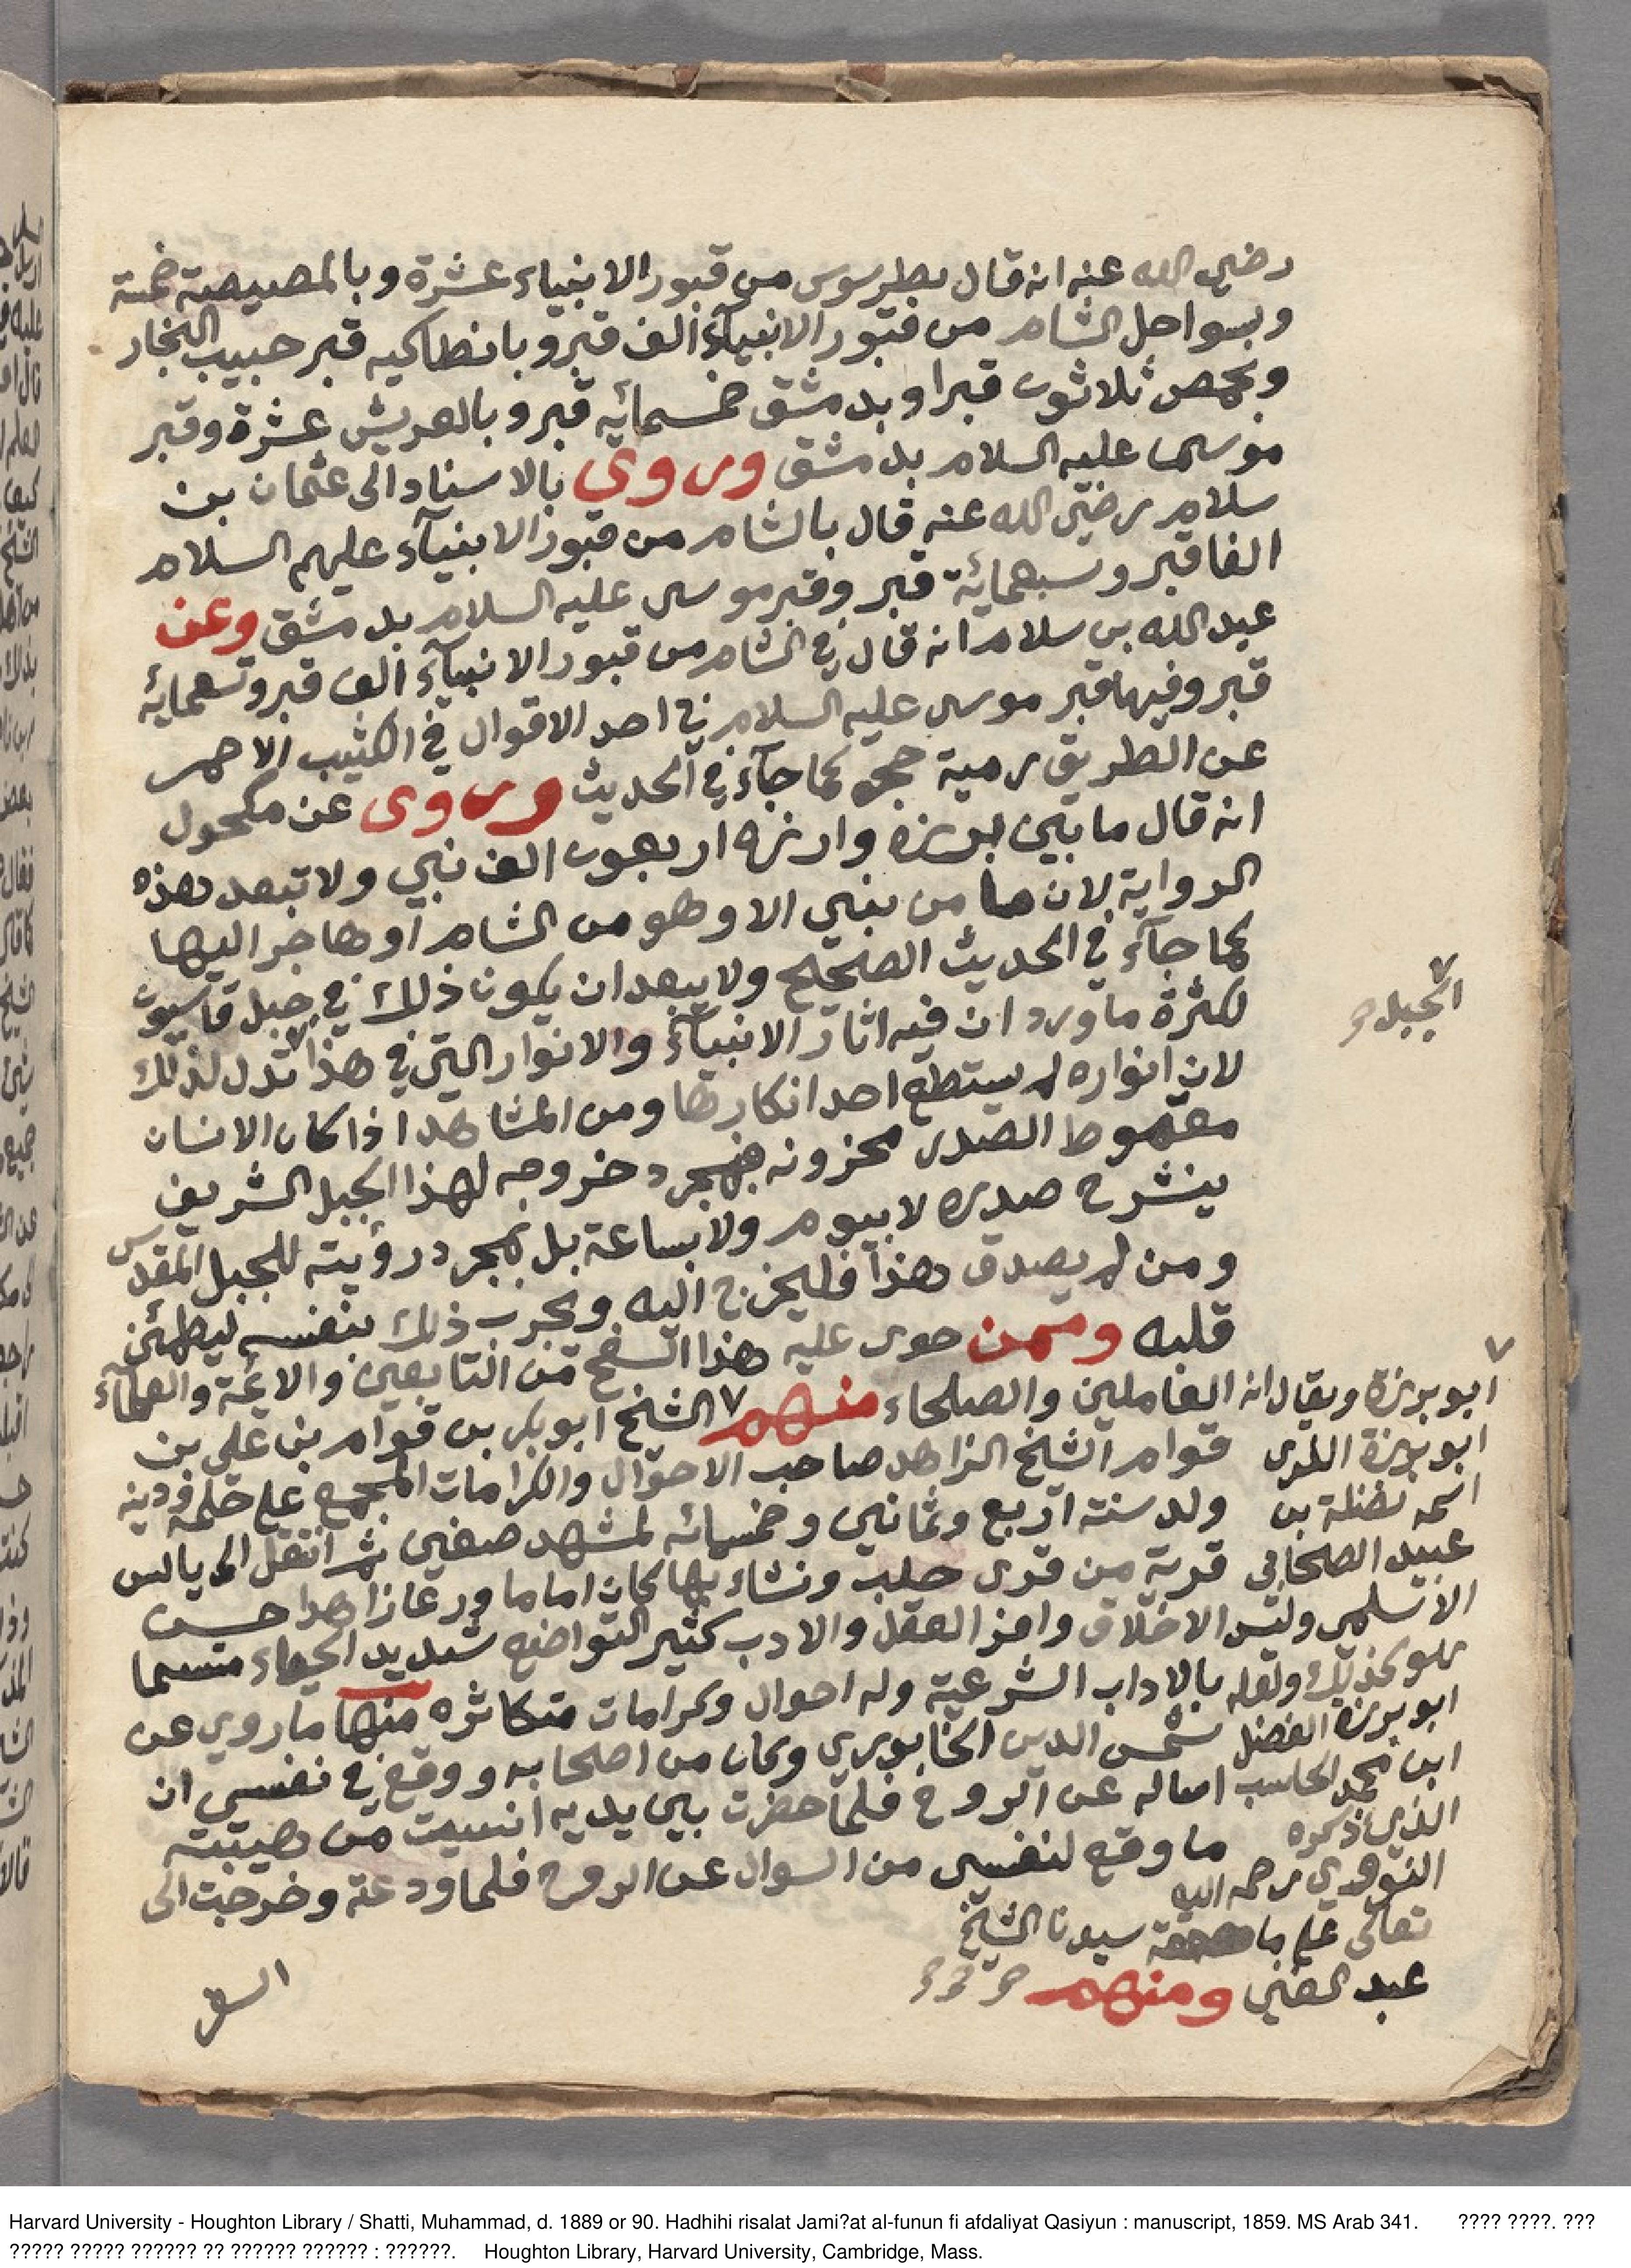 رضي الله عنه انه قال بطرسوس من قبور الانبياء عشرة وبالمصيصة خمسة
وبسواحل الشام من قبور الانبيآء الف قبر وبانطاكيه قبر حبيب النجار
وبحمص ثلاثون قبرا وبدمشق خمسمائه قبر وبالعريش عشرة وقبر
موسى عليه السلام بدمشق وروي بالاسناد الى عثمان بن
سلام رضي الله عنه قال بالشام من قبور الانبيآء عليهم السلام
الفا قبر وسبعمائة قبر وقبر موسى عليه السلام بدمشق وعن
عبد الله بن سلام انه قال في الشام من قبور الانبيآء الف قبر وتسعمايه
قبر وفيها قبر موسى عليه السلام في احد الاقوال في الكثيب الاحمر
عن الطريق رمية حجر كما جآء في الحديث وروى عن مكحول
انه قال ما بين برزه وارزه اربعون الف نبي ولا تبعد هذه
الرواية لان ما من نبي الا وهو من الشام او هاجر اليها
كما جآء في الحديث الصحيح ولا يبعد ان يكون ذلك في جبل قاسيون
لكثرة ما ورد ان فيه اثار الانبيآء والانوار التي في هذا٧ تدل لذلك
الجبل صح
لان انواره لم يستطع احد انكارها ومن المشاهد اذا كان الانسان
مغموط الصدر محزونه فبمجرد خروجه لهذا الجبل الشريف
ينشرح صدره لا بيوم ولا بساعة بل بمجرد رؤيته للجبل المقدس
ومن لم يصدق هذا فليخرج اليه ويجرب ذلك بنفسه ليطمئن
قلبه وممن حوى عليه هذا السفح من التابعين والائمة والعلمآء
العاملين والصلحاء منهم٧ الشيخ ابو بكر بن قوام بن علي بن
قوام الشيخ الزاهد صاحب الاحوال والكرامات المجمع على ودينه
ولد سنة اربع وثمانين وخمسمائه لمشهد صفين ثم انتقل الى بالس
قرية من قرى حلب ونشاء بها كان اماما ورعا زاهدا حسن
الاخلاق وافر العقل والادب كثير التواضع شديد الحياء متسما
بالاداب الشرعية وله احوال وكرامات متكاثره منها ما روي عن
شمس الدين الخابوري وكان من اصحابه ووقع في نفسي ان
اساله عن الروح فلما حضرت بين يديه انسيت من هيبته
ما وقع لنفسي من السوال عن الروح فلما ودعته وخرجت الى
ابو برزة ويقال انه
ابو برزة الذي
اسمه نضلة بن
عبيد الصحابي
الاسلمي وليس
هو كذلك ولعله
ابو برزة الفضل
ابن محمد الحاسب
الذي ذكره
النووي رحمه الله
تعالى على ما حققه سيدنا الشيخ
عبد الغني ومنهم صح صح صح
السفر
Harvard University - Houghton Library / Shatti, Muhammad, d. 1889 or 90. Hadhihi risalat Jami?at al-funun fi afdaliyat Qasiyun : manuscript, 1859. MS Arab 341. ???? ????. ???
????? ????? ?????? ?? ?????? ?????? : ??????. Houghton Library, Harvard University, Cambridge, Mass.